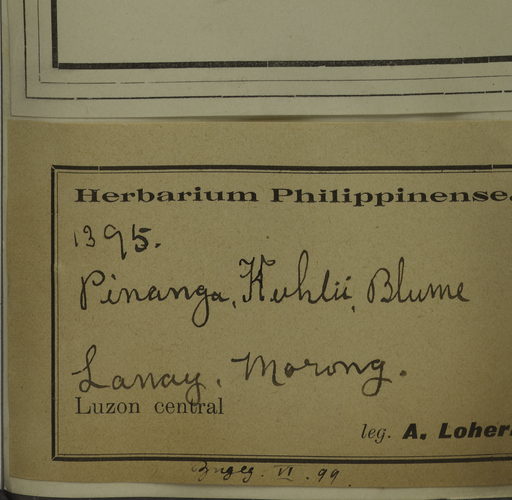 Herbarium Philippinense.
1395.
Pinanga, Kuhlii, Blume
Lanay, Morong.
Luzon central
leg. A. Loher.
VI. 99